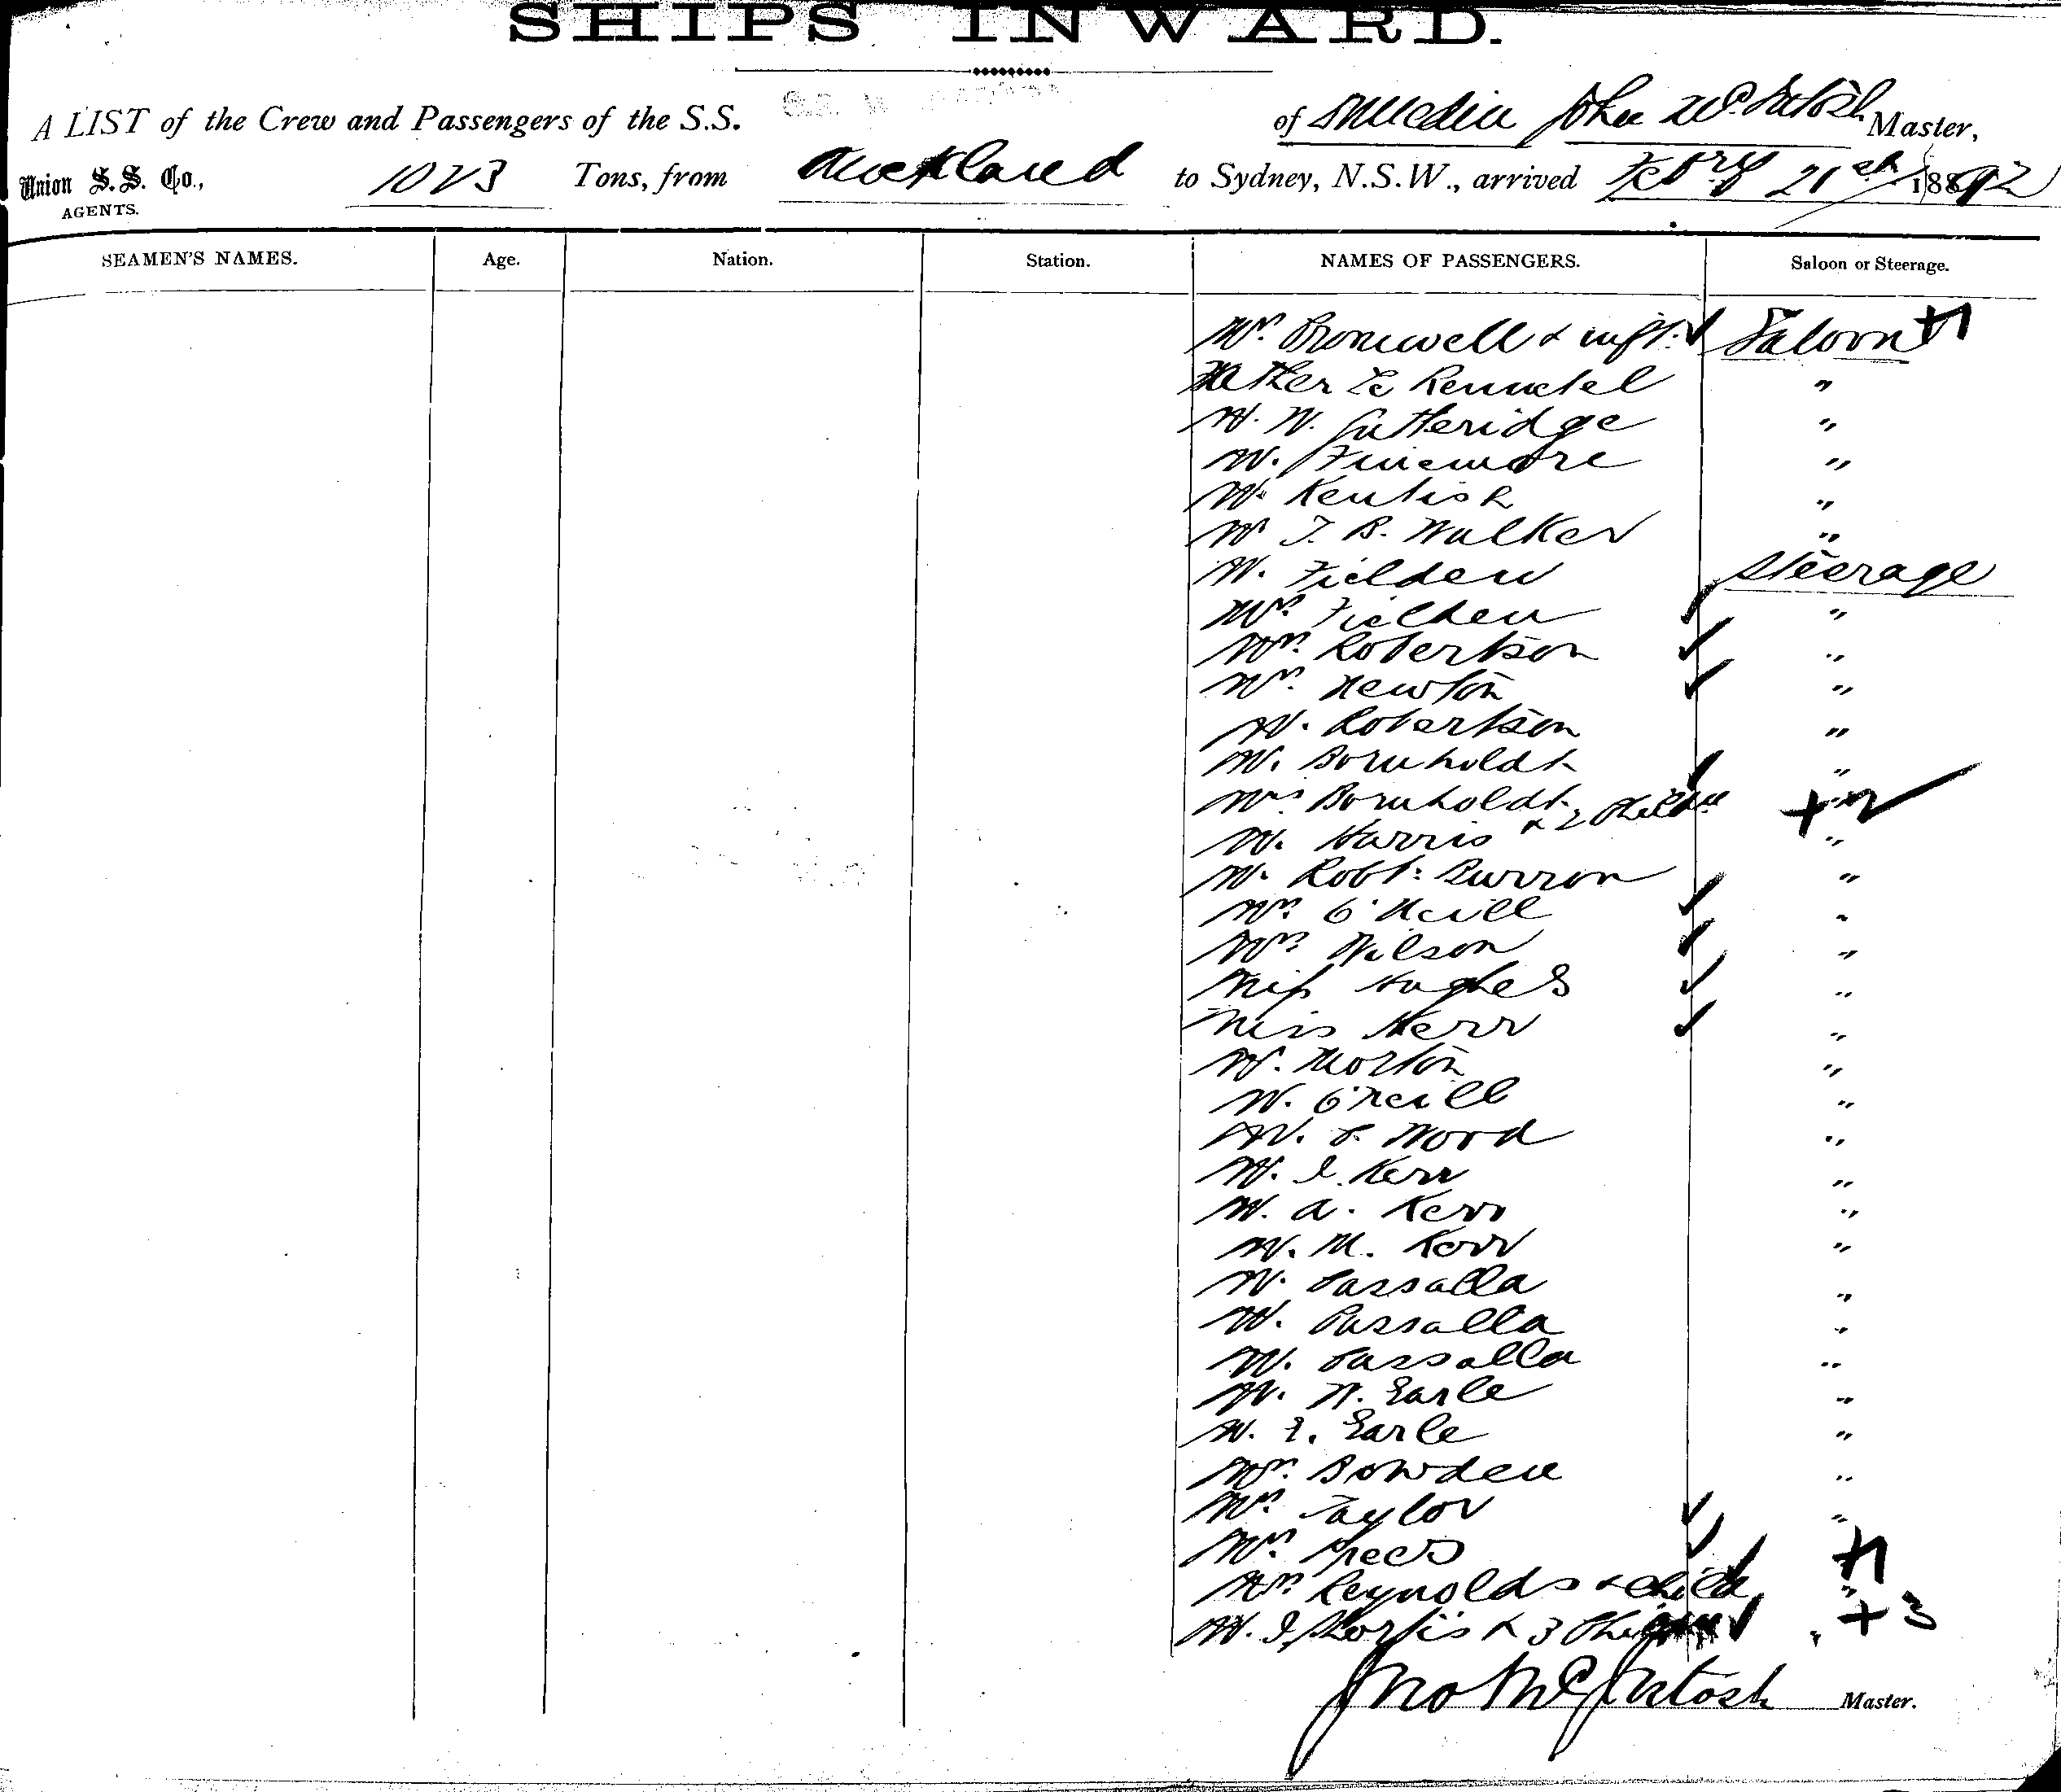 SHIPS INWARD.
A LIST of the Crew and Passengers of the S.S. of Dunedin John McIntosh Master,
Union S.S. Co., AGENTS. 1023 Tons, from Auckland to Sydney, N.S.W., arrived Febry 21st 1892
SEAMEN'S NAMES. Age. Nation. Station. NAMES OF PASSENGERS. Saloon or Steerage.
Mrs. Bromwell & inft. Saloon +1
Father Le "
Mr. W. Gutteridge "
Mr. Finemore "
Mr. Kentish "
Mr T. B. Walker "
Mr. Fielden Steerage
Mrs. Fielden "
Mrs. Robertson "
Mrs. Newton "
Mr. Robertson "
Mr. Bornholdt "
Mrs Bornholdt & 2 Children " +2
Mr. Harris "
Mr. Robt. Burron "
Mrs. O'Neill "
Mrs. Wilson "
Miss Hughes "
Miss Kerr "
Mr. Morton "
Mr. O'Neill "
Mr. Wood "
Mr. J. Kerr "
Mr. A. Kerr "
Mr. M. Kerr "
Mr. Passalla "
Mr. Passalla "
Mr. Passalla "
Mr. W. Earle "
Mr. F. Earle "
Mrs. Bowden "
Mrs. Taylor "
Mrs. "
Mrs. Reynolds & child " +1
Mr. J. & 3 " +3
Jno McIntosh Master.